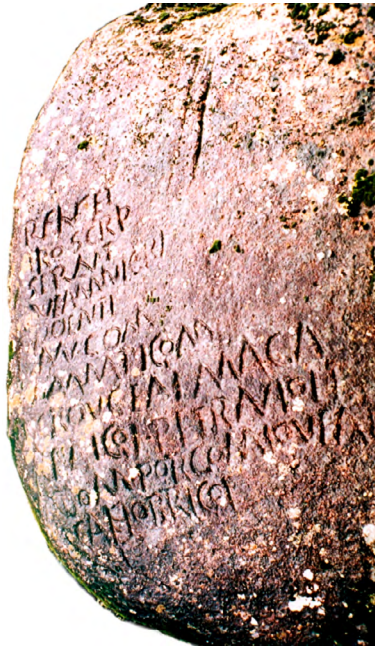 TIRO SCRIP
SERVNT
VEAMINICORI
DOENTI
ANGOM
LAMATICOM
CROVCEAIMAGA
REAICOI PETRANIOI
ADOM PORCOM
CAELOBRICOI